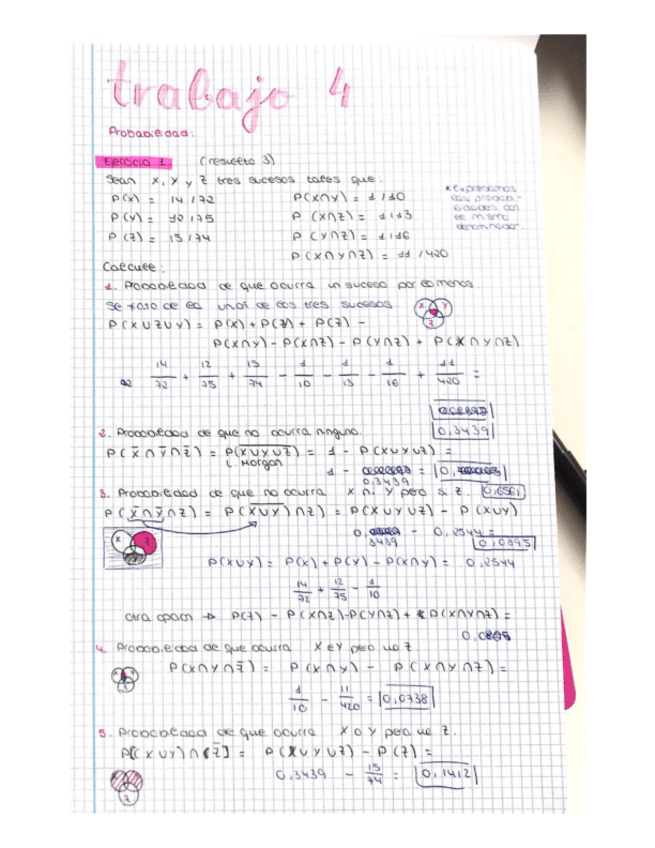 trabajo 4
Probabilidad:
Ejercicio 1 (resuelto 3)
Sean X, Y y Z tres sucesos tales que:
P(X) = 14/72 P(X∩Y) = 1/10
P(Y) = 12/75 P(X∩Z) = 1/13
P(Z) = 15/74 P(Y∩Z) = 1/16
P(X∩Y∩Z) = 11/420
* Expresamos
las probabi-
lidades con
el mismo
denominador.
Calcule:
1. Probabilidad de que ocurra un suceso por lo menos.
Se trata de la unión de los tres sucesos
X Y
Z
P(X∪Z∪Y) = P(X) + P(Y) + P(Z) -
P(X∩Y) - P(X∩Z) - P(Y∩Z) + P(X∩Y∩Z)
14/72 + 12/75 + 15/74 - 1/10 - 1/13 - 1/16 + 11/420 =
0,3439
2. Probabilidad de que no ocurra ninguno.
P(X̄∩Ȳ∩Z̄) = P(X∪Y∪Z) = 1 - P(X∪Y∪Z) =
L. Morgan
1 - 0,3439 =
0,6561
3. Probabilidad de que no ocurra X ni Y pero si Z.
P(X̄∩Ȳ∩Z) = P(X∪Y)∩Z) = P(X∪Y∪Z) - P(X∪Y)
0,3439 - 0,2544 =
0,0895
X Z
P(X∪Y) = P(X) + P(Y) - P(X∩Y) = 0,2544
14/72 + 12/75 - 1/10
otra opción → P(Z) - P(X∩Z) - P(Y∩Z) + P(X∩Y∩Z) =
0,0895
4. Probabilidad de que ocurra X e Y pero no Z.
P(X∩Y∩Z̄) = P(X∩Y) - P(X∩Y∩Z) =
1/10 - 11/420 = 0,0738
5. Probabilidad de que ocurra X o Y pero no Z.
P[(X∪Y)∩(Z̄] = P(X∪Y∪Z) - P(Z) =
0,3439 - 15/74 = 0,1412
Z